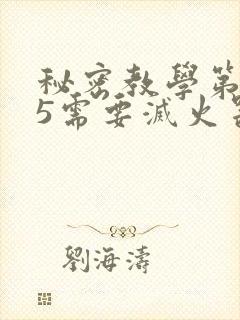 秘密教學第
5需要滅火
劉海濤